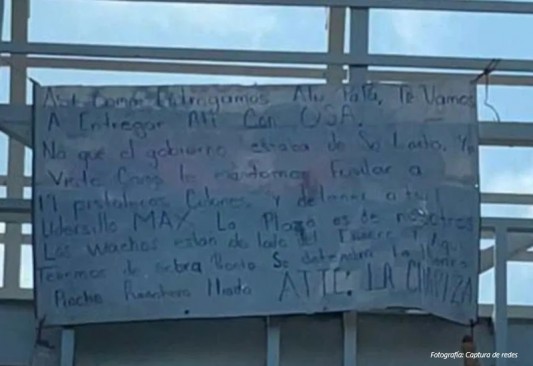 Asi Como Entregamos A tu PaPa, Te Vamos
A Entregar Ati Con USA.
No que el gobierno estaba de Su Lado, Ya
Viste Como lo mandamos Fusilar a
17 pistoleros Culones y detener a tu
Lidersillo MAX La Plaza es de nosotros
Los Wachos estan de lado del
Tenemos de sobra Hasta Se
Pinche Ranchero Miado ATTE: LA CHAPIZA
Fotografía: Captura de redes